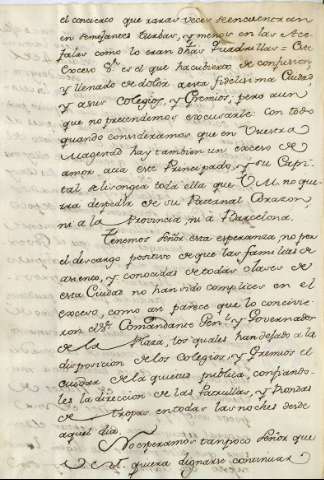 el concierto que raras veces se encuentra aun
en semejantes turbas, y menos en las Ace-
falas como lo eran dhãs Quadrillas = Este
excesso Sr. es el que ha cubierto de confusion
y llenado de dolor a esta fidelissima Ciudad
y a sus Colegios, y Gremios, pero aun
que no pretendemos excusarle con todo
quando consideramos que en Vuestra
Magestad hay tambien un excesso de
amor acia este Principado, y su Capi-
tal se lisongea toda ella que V. M. no que
rrá despedir de su Paternal Corazon
ni a la Provincia ni á Barcelona.
Tenemos Señor esta esperanza, no por
el descargo positivo de que las familias de
asiento, y conocidas de todas clases de
esta Ciudad no han sido complices en el
excesso, como assi parece que lo concivie-
ron el Comandante Genl. y Governador
de la Plaza, los quales han dejado a la
disposicion de los Colegios, y Gremios el
cuidar de la quietud publica, confiando-
les la direccion de las Patrullas, y Rondas
de tropas en todas las noches desde
aquel dia.
No esperamos tampoco Señor que
V. M. quiera dignarse continuar